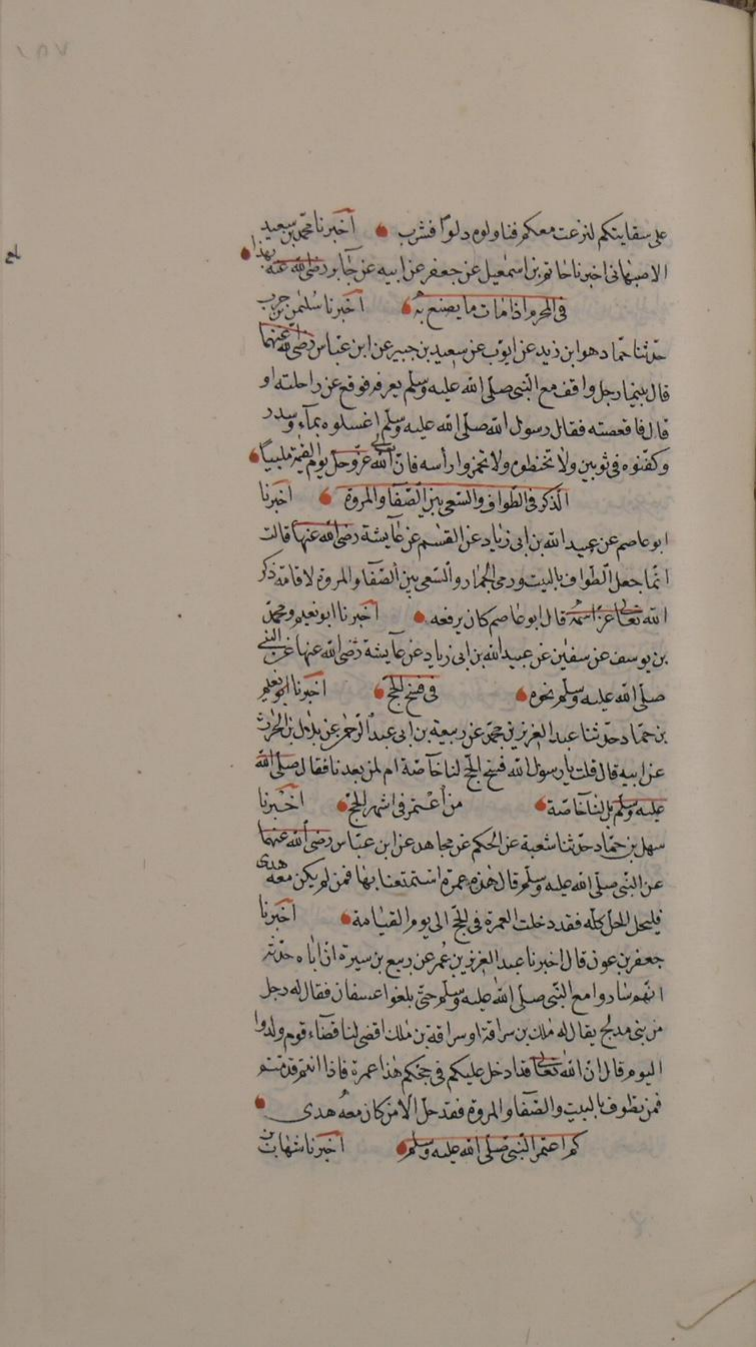 ١٨٧
على سقايتكم لنزعت معكم فناولوه دلوا فشرب أخبرنا محمد بن سعيد
الاصبهانى اخبرنا حاتم بن اسمعيل عن جعفر عن ابيه عن جابر رضى الله عنه بهذا
فى المحرم اذا مات ما يصنع به أخبرنا سليمن بن حرب
حدثنا حماد هو ابن زيد عن ايوب عن سعيد بن جبير عن ابن عباس رضى الله عنهما
قال بينما رجل واقف مع النبى صلى الله عليه وسلم بعرفة فوقع عن راحلته او
قال فاقعصته فقال رسول الله صلى الله عليه وسلم اغسلوه بماء وسدر
وكفنوه فى ثوبين ولا تحنطوه ولا تخمروا رأسه فان الله تعالى عز وجل يوم القيمة ملبيا
الذكر فى الطواف والسعى بين الصفا والمروة اخبرنا
ابو عاصم عن عبيد الله بن ابى زياد عن القسم عن عآيشة رضى الله عنها قالت
انما جعل الطواف بالبيت ورمى الجمار والسعى بين الصفا والمروة لاقامة ذكر
الله تعالى عز اسمه قال ابو عاصم كان يرفعه أخبرنا ابو نعيم ومحمد
بن يوسف عن سفين عن عبيد الله بن ابى زياد عن عآيشة رضى الله عنها عن النبى
صلى الله عليه وسلم نحوه فى فسخ الحج اخبرنا ابو نعيم
بن حماد حدثنا عبد العزيز بن محمد عن ربيعة بن ابى عبد الرحمن عن بلال بن الحرث
عن ابيه قال قلت يا رسول الله فسخ الحج لنا خاصة ام لمن بعدنا فقال صلى الله
عليه وسلم بل لنا خاصة من أعتمر فى اشهر الحج اخبرنا
سهل بن حماد حدثنا شعبة عن الحكم عن مجاهد عن ابن عباس رضى الله عنهما
عن النبى صلى الله عليه وسلم قال هذه عمرة استمتعنا بها فمن لم يكن معه هدى
فليحل الحل كله فقد دخلت العمرة فى الحج الى يوم القيامة اخبرنا
جعفر بن عون قال اخبرنا عبد العزيز بن عمر عن ربيع بن سبرة ان اباه حدثه
انهم ساروا مع النبى صلى الله عليه وسلم حتى بلغوا عسفان فقال له رجل
من بنى مدلج يقال له ملك بن سراقة او سراقة بن ملك اقض لنا قضآء قوم ولدوا
اليوم قال ان الله تعالى قد ادخل عليكم فى حجكم هذا عمرة فاذا انتم قدمتم
فمن تطوف بالبيت والصفا والمروة فقد حل الا من كان معه هدى
كم اعتمر النبى صلى الله عليه وسلم اخبرنا شهاب بن